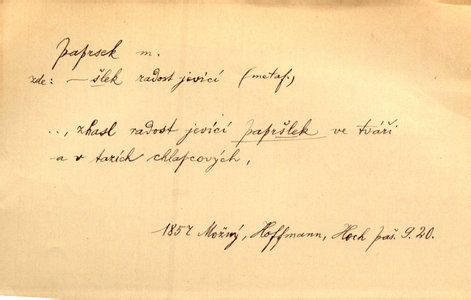 paprsek m.
zde: —šlek radost jevící (metaf.)
..., zhasl radost jevící papršlek ve tváři
a v tazích chlapcových,
1857 Možný, Hoffmann, Hoch paš. 9.20.